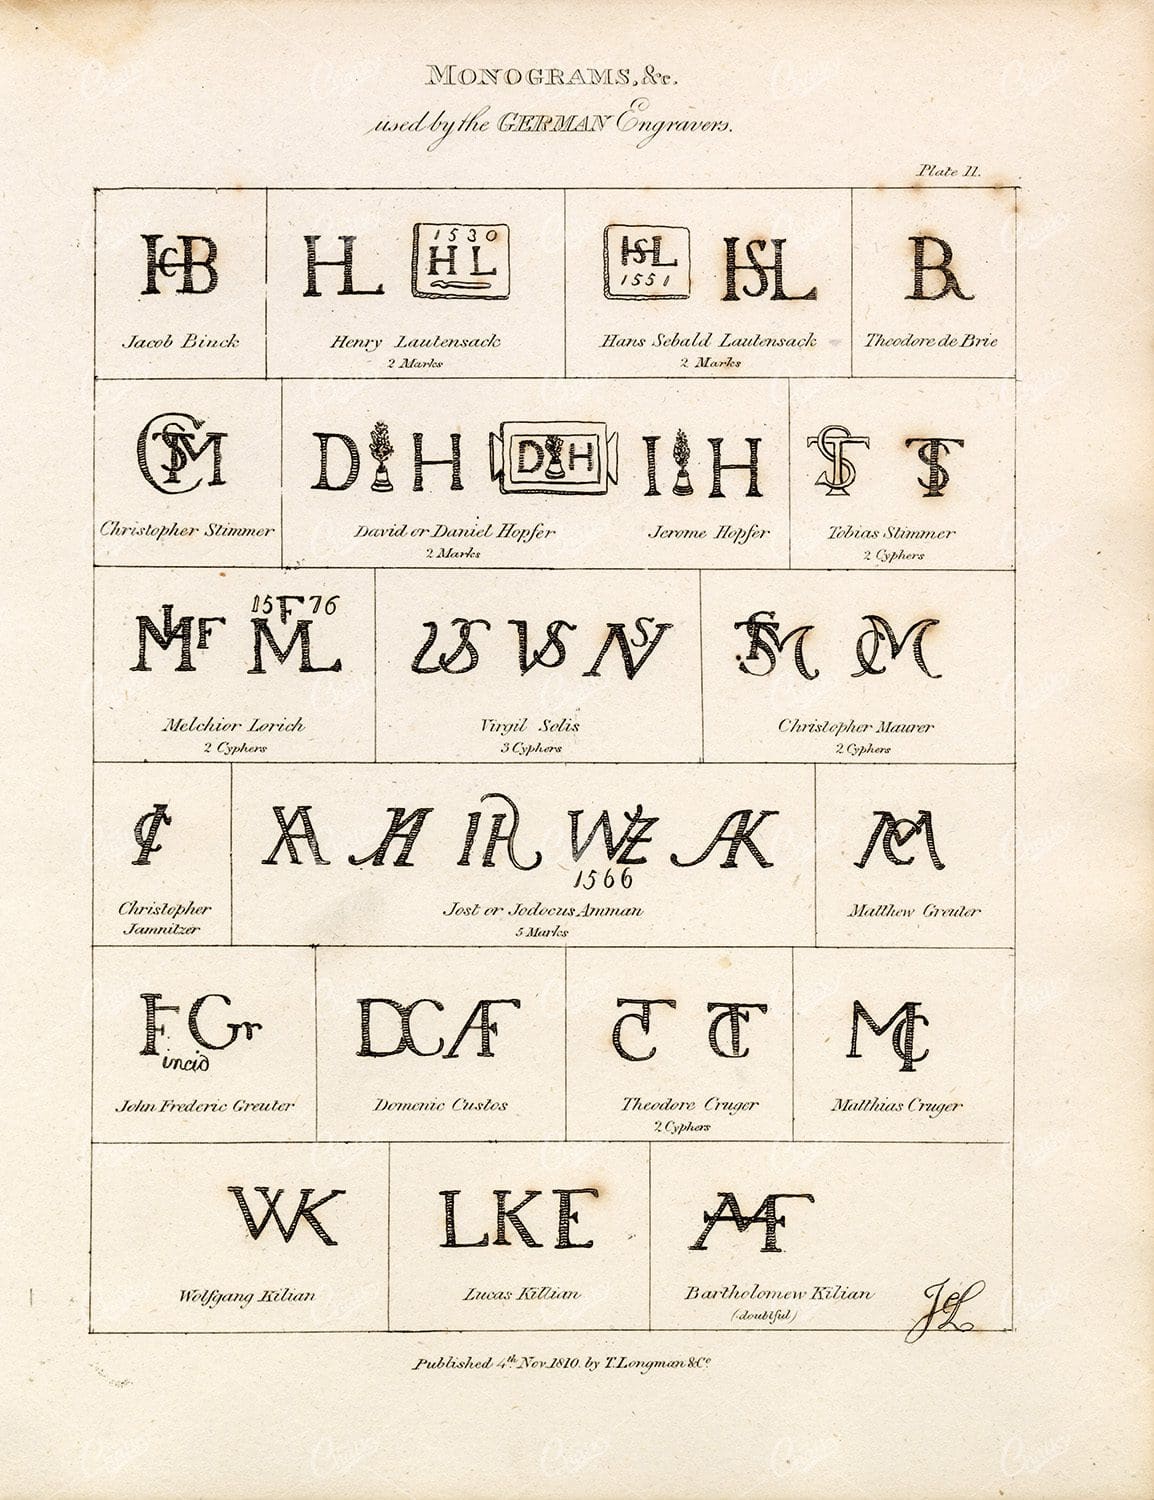 MONOGRAMS, &c.
used by the GERMAN Engravers.
Plate II.
HCB
HL
1530
HL
HSL
1551
HSL
BR
Jacob Binck
Henry Lautensack
2 Marks
Hans Sebald Lautensack
2 Marks
Theodore de Brie
CSTM
D H
D H
I H
ST
TS
Christopher Stimmer
David or Daniel Hopfer
2 Marks
Jerome Hopfer
Tobias Stimmer
2 Cyphers
15 F 76
ML
VS VS
Melchior Lorich
2 Cyphers
Virgil Solis
3 Cyphers
Christopher Maurer
2 Cyphers
1566
AK
Christopher
Jamnitzer
Jost or Jodocus Amman
5 Marks
Matthew Greuter
F Gr
incid
DCAF
TC
MC
John Frederic Greuter
Domenic Custos
Theodore Cruger
2 Cyphers
Matthias Cruger
WK
LKF
Wolfgang Kilian
Lucas Killian
Bartholomew Kilian
(doubtful)
Published 4th Nov. 1810. by T. Longman & Co.